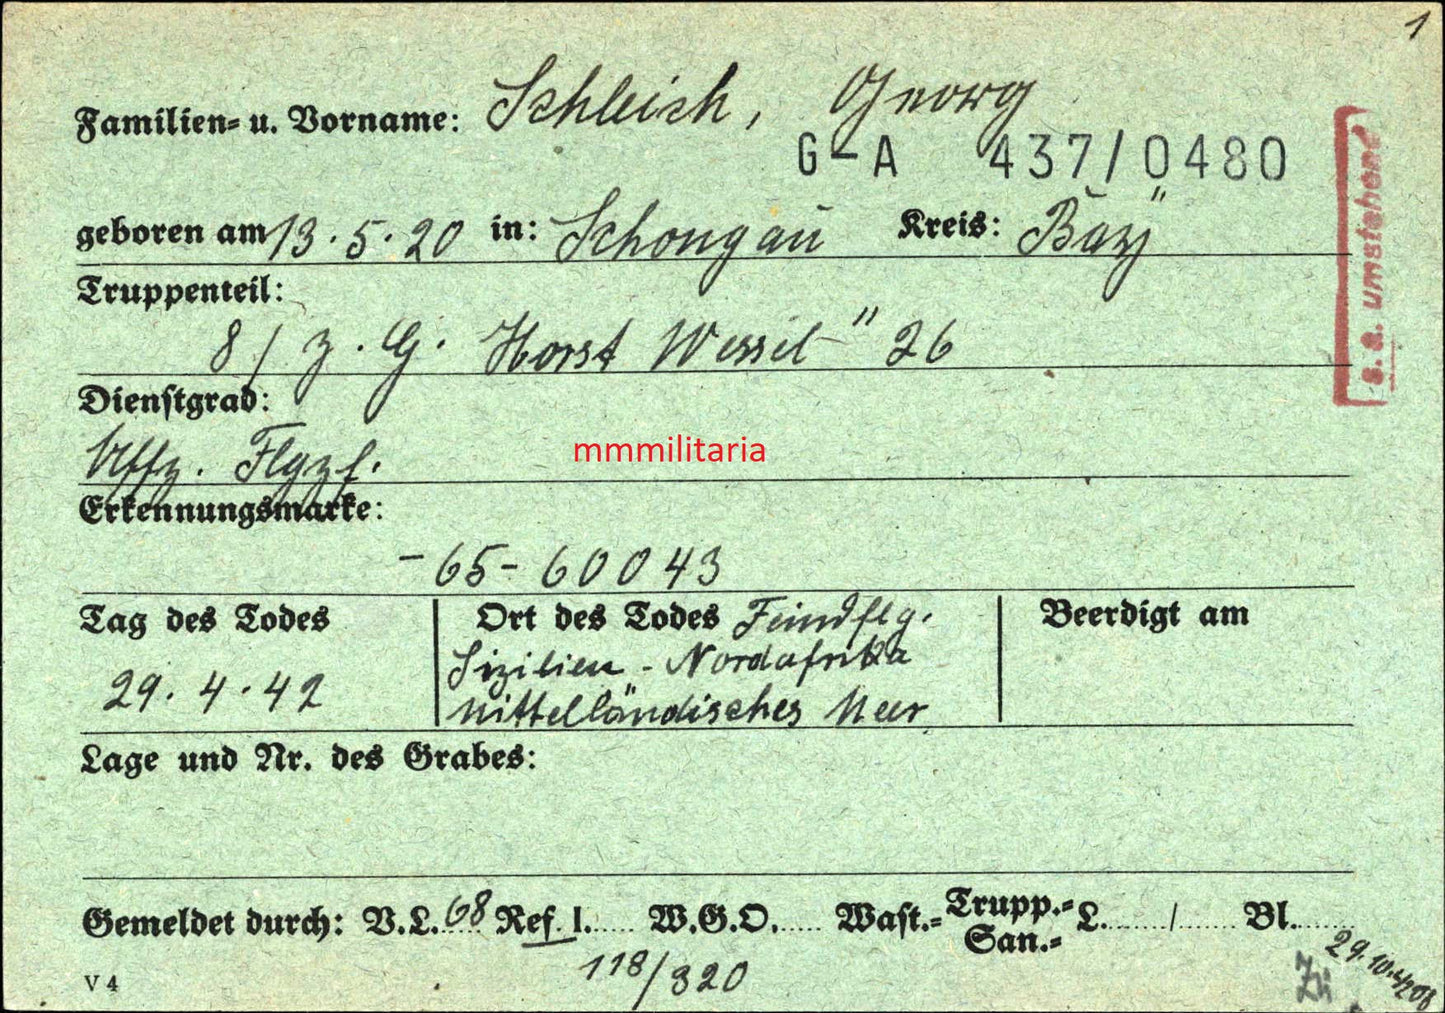 1
Familien- u. Vorname: Schleich, Georg
G-A 437/0480
geboren am 13.5.20 in: Schongau Kreis: Bay
Truppenteil:
8/Z.G. Horst Wessel" 26
Dienstgrad:
Uffz. Flgzf.
Erkennungsmarke:
-65- 60043
Tag des Todes
29.4.42
Ort des Todes Feindflg.
Sizilien - Nordafrika
Mittelländisches Meer
Beerdigt am
Lage und Nr. des Grabes:
Gemeldet durch: V.L. 68 Ref I. W.G.O. Wast.- Trupp.- San.- L. / Bl.
118/320
V 4
s.a. umstehend
mmmilitaria